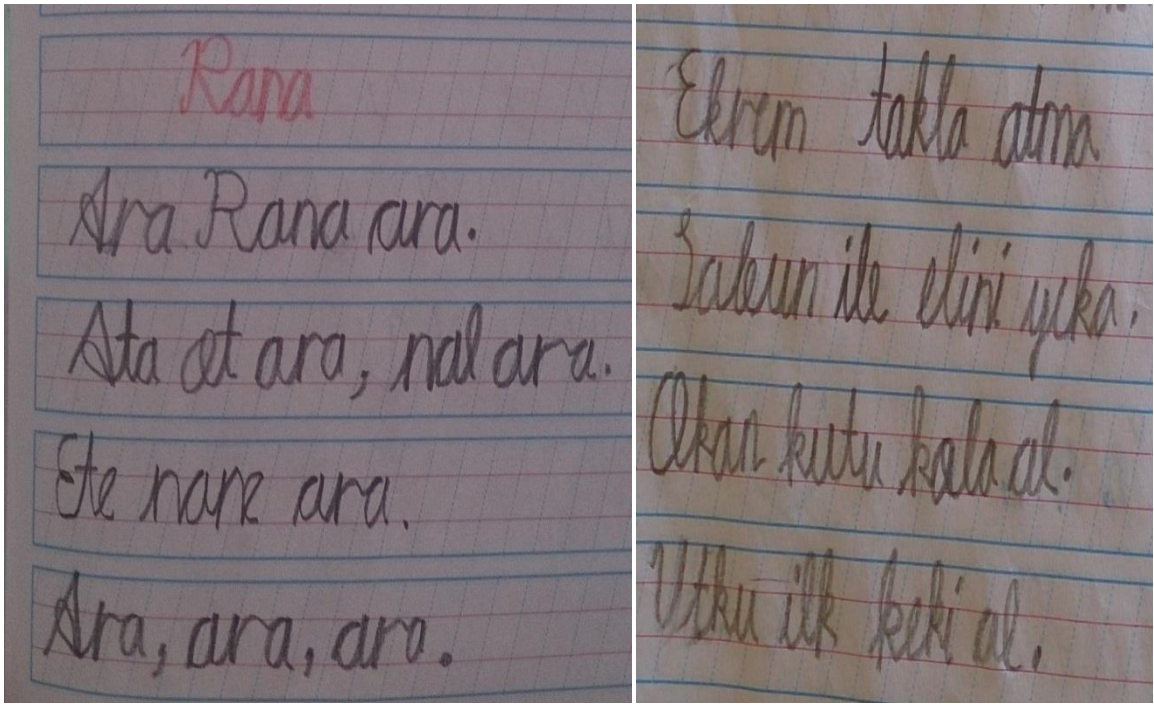 Rana
Ara Rana ara.
Ata at ara, nal ara.
Ete nane ara.
Ara, ara, ara.
Ekrem takla atma
Sabun ile elini yıka.
Okan kutu kola al.
Utku ilk keki al.